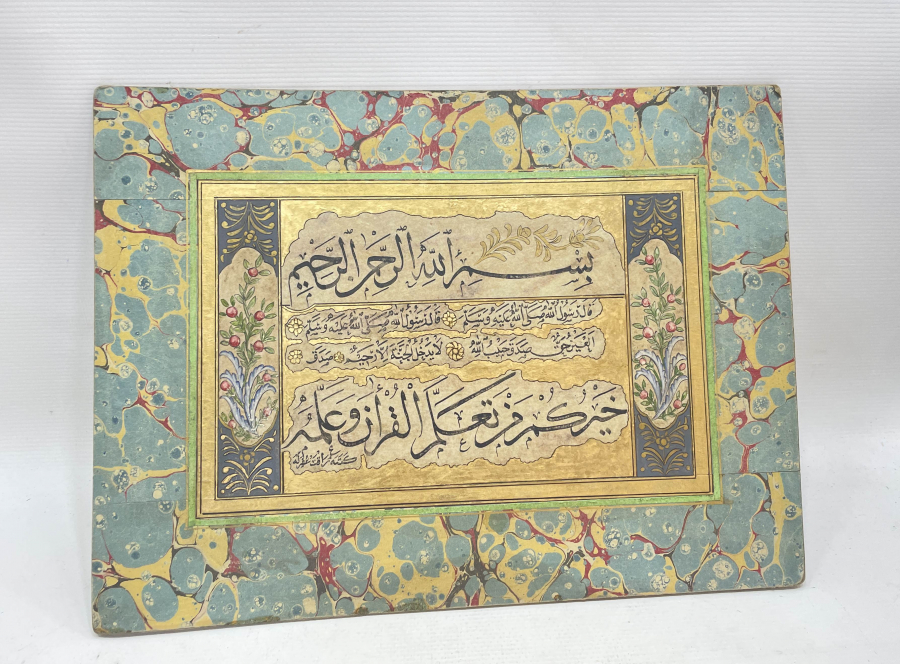 بسم الله الرحمن الرحيم
قال رسول الله صلى الله عليه وسلم قال رسول الله صلى الله عليه وسلم
العين حق صدق حبيب الله لا يدخل الجنة الا رحيم صدق
خيركم من تعلم القرآن وعلمه
كتبه رأفت غفر له